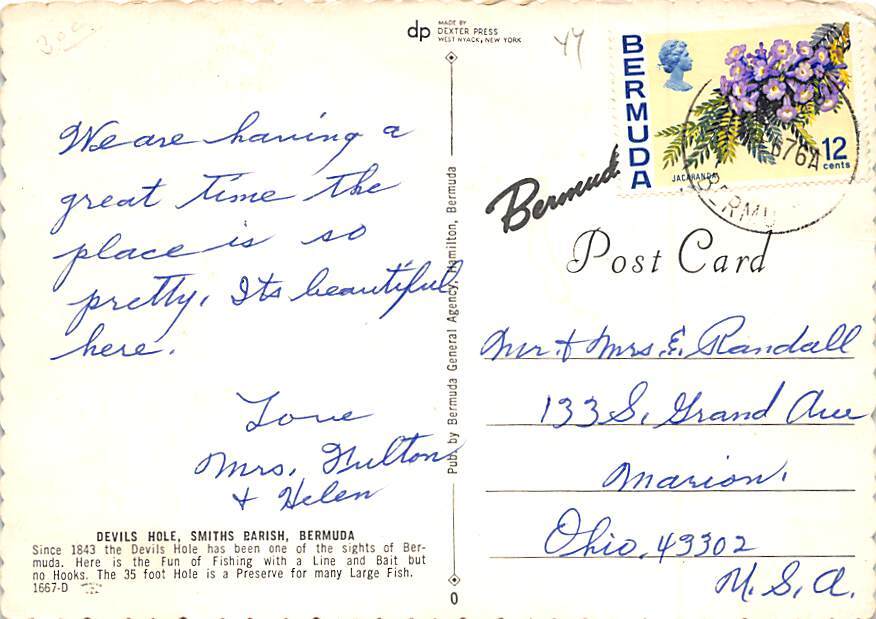 dp MADE BY
DEXTER PRESS
WEST NYACK, NEW YORK
We are having a
great time the
place is so
pretty. Its beautiful
here.
Love
Mrs. Fulton
+ Helen
DEVILS HOLE, SMITHS PARISH, BERMUDA
Since 1843 the Devils Hole has been one of the sights of Ber-
muda. Here is the Fun of Fishing with a Line and Bait but
no Hooks. The 35 foot Hole is a Preserve for many Large Fish.
1667-D
Pub. by Bermuda General Agency, Hamilton, Bermuda
0
BERMUDA
JACARANDA
12
cents
Bermud
Post Card
Mr. + Mrs. E. Randall
133 S. Grand Ave
Marion.
Ohio. 43302
U.S.A.